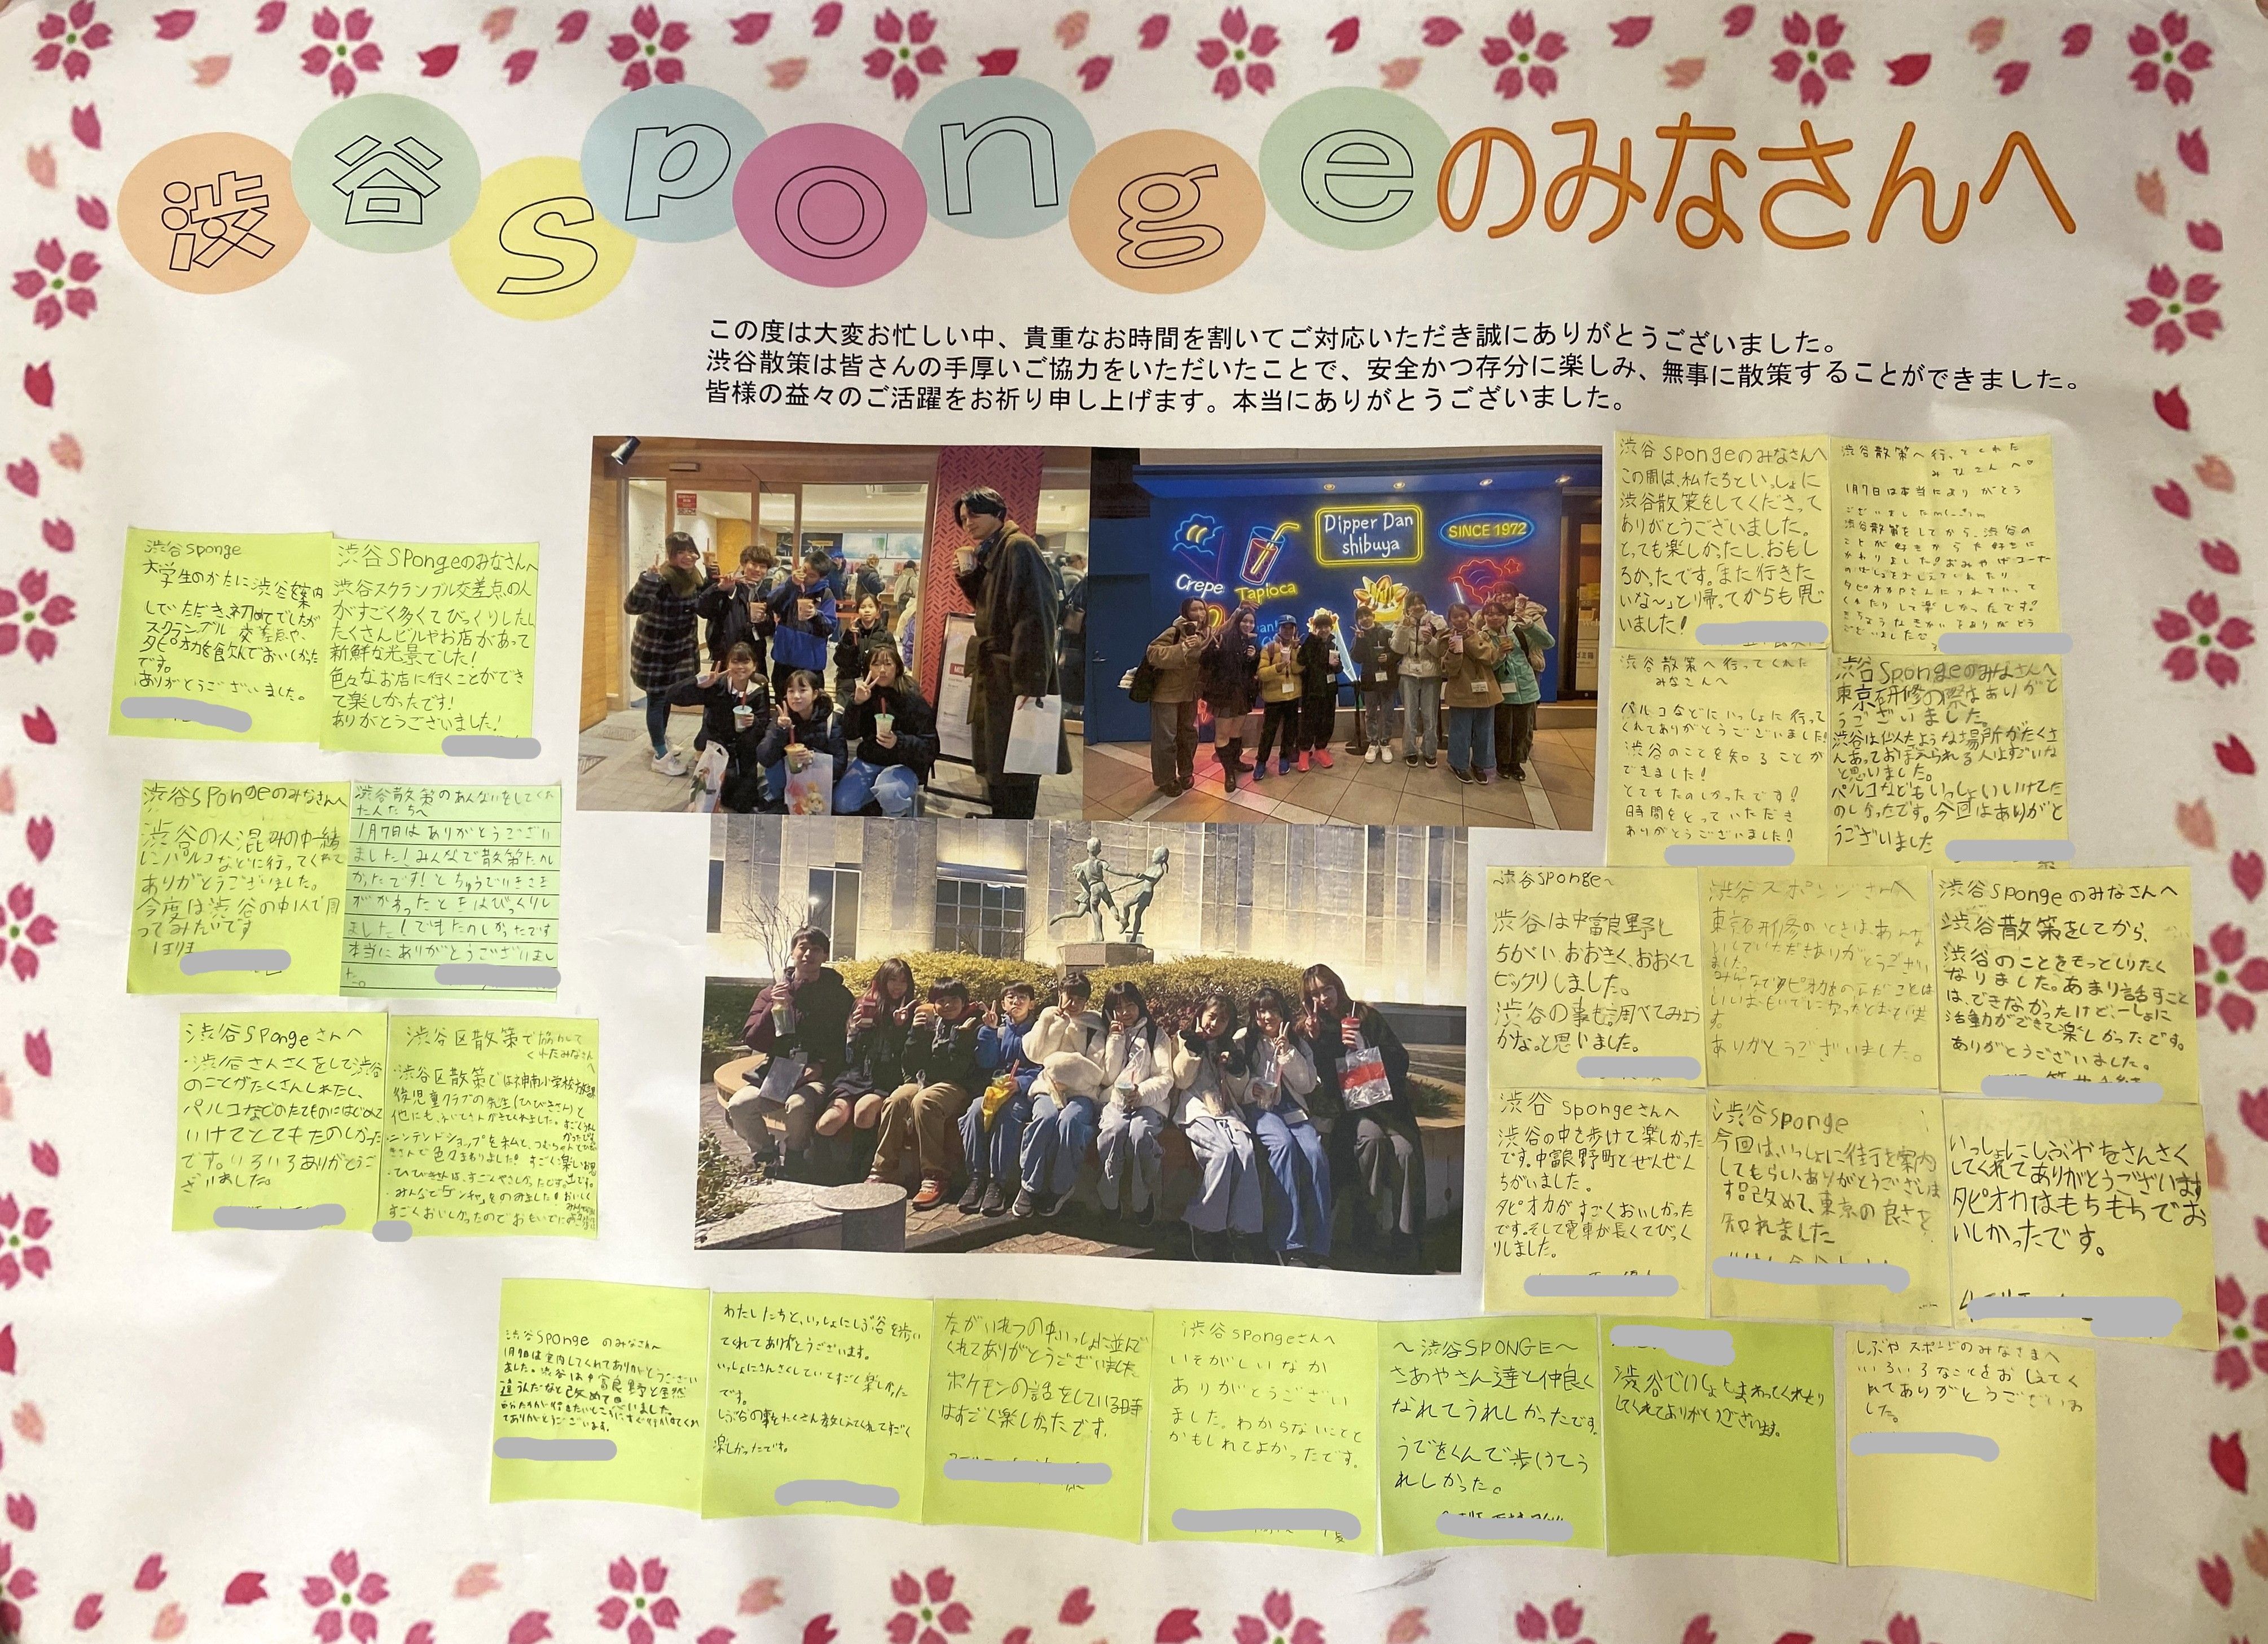 渋谷spongeのみなさんへ
この度は大変お忙しい中、貴重なお時間を割いてご対応いただき誠にありがとうございました。
渋谷散策は皆さんの手厚いご協力をいただいたことで、安全かつ存分に楽しみ、無事に散策することができました。
皆様の益々のご活躍をお祈り申し上げます。本当にありがとうございました。
Dipper Dan
shibuya
SINCE 1972
Crepe
Tapioca
渋谷sponge
大学生のかたに渋谷を案内
していただき、初めてでしたが
スクランブル交差点や、
タピオカを飲んでおいしかった
です。
ありがとうございました。
渋谷SPongeのみなさんへ
渋谷スクランブル交差点の人
がすごく多くてびっくりしたし
たくさんビルやお店があって
新鮮な光景でした!
色々なお店に行くことができ
て楽しかったです!
ありがとうございました!
渋谷SPongeのみなさんへ
渋谷の人混みの中一緒
にパルコなどに行ってくれて
ありがとうございました。
今度は渋谷の中1人で回
ってみたいです
渋谷散策のあんないをしてくれ
た人たちへ
1月7日はありがとうござい
ました!みんなで散策たのし
かったです!とちゅうで
びっくりし
ました!でもたのしかったです
本当にありがとうございまし
た。
渋谷SPongeさんへ
渋谷さんさくをして渋谷
のことがたくさんしれたし、
パルコなどのたてものにはじめて
いけてとてもたのしかった
です。いろいろありがとうご
ざいました。
渋谷区散策で協力して
くれたみなさんへ
・渋谷区散策では神南小学校放課
後児童クラブの先生(ひびきさん)と
すごくおいしかったのでおもいでに
渋谷spongeのみなさんへ
この間は、私たちといっしょに
渋谷散策をしてくださって
ありがとうございました。
とっても楽しかったし、おもし
ろかったです。「また行きた
いな〜」と帰ってからも思
いました!
渋谷散策へ行ってくれた
みなさんへ。
1月7日は本当にありがとう
ございました
渋谷散策をしてから、渋谷の
ことが好きから大好きに
かわりました!おみやげコーナー
のばしょをおしえてくれたり
タピオカやさんにつれていって
くれたりして楽しかったです!
きちょうなきかいをありがとう
ございました
渋谷散策へ行ってくれた
みなさんへ
パルコなどにいっしょに行って
くれてありがとうございました!
渋谷のことを知ることが
できました!
とてもたのしかったです!
時間をとっていただき
ありがとうございました!
渋谷Spongeのみなさんへ
東京研修の際はありがと
うございました。
渋谷は似たような場所がたくさ
んあっておぼえられる人はすごいな
と思いました。
パルコなどもいっしょにいけてた
のしかったです。今回はありがと
うございました
〜渋谷sponge〜
渋谷は中富良野と
ちがい、おおきく、おおくて
ビックリしました。
渋谷の事も調べてみよう
かな。と思いました。
渋谷スポンジさんへ
東京研修のときは、あんな
いしていただきありがとうござい
ました。
みんなでタピオカをのんだことは
いいおもいでになったとおもいま
す。
ありがとうございました。
渋谷spongeのみなさんへ
渋谷散策をしてから、
渋谷のことをもっとしりたく
なりました。あまり話すこと
は、できなかったけど、一しょに
活動ができて楽しかったです。
ありがとうございました。
渋谷spongeさんへ
渋谷の中を歩けて楽しかった
です。中富良野町とぜんぜん
ちがいました。
タピオカがすごくおいしかった
です。そして電車が長くてびっく
りしました。
渋谷sponge
今回は、いっしょに街を案内
してもらい、ありがとうございま
す。改めて、東京の良さを
知れました
いっしょにしぶやをさんさく
してくれてありがとうございます
タピオカはもちもちでお
いしかったです。
渋谷sponge のみなさんへ
1月7日は案内してくれてありがとうござい
ました。渋谷は中富良野と全然
違うんだなと改めて思いました。
てありがとうございます。
わたしたちと、いっしょにしぶ谷を歩い
てくれてありがとうございます。
いっしょにさんさくしていてすごく楽しかった
です。
しぶ谷の事をたくさん教えてくれてすごく
楽しかったです。
ながいれつの中いっしょに並んで
くれてありがとうございました
ポケモンの話をしている時
はすごく楽しかったです。
渋谷spongeさんへ
いそがしいなか
ありがとうござい
ました。わからないこと
かもしれてよかったです。
〜渋谷SPONGE〜
さあやさん達と仲良く
なれてうれしかったです。
うでをくんで歩けてう
れしかった。
渋谷でいっしょにまわってくれたり
してくれてありがとうございます。
しぶやスポンジのみなさまへ
いろいろなことをおしえてく
れてありがとうございま
した。